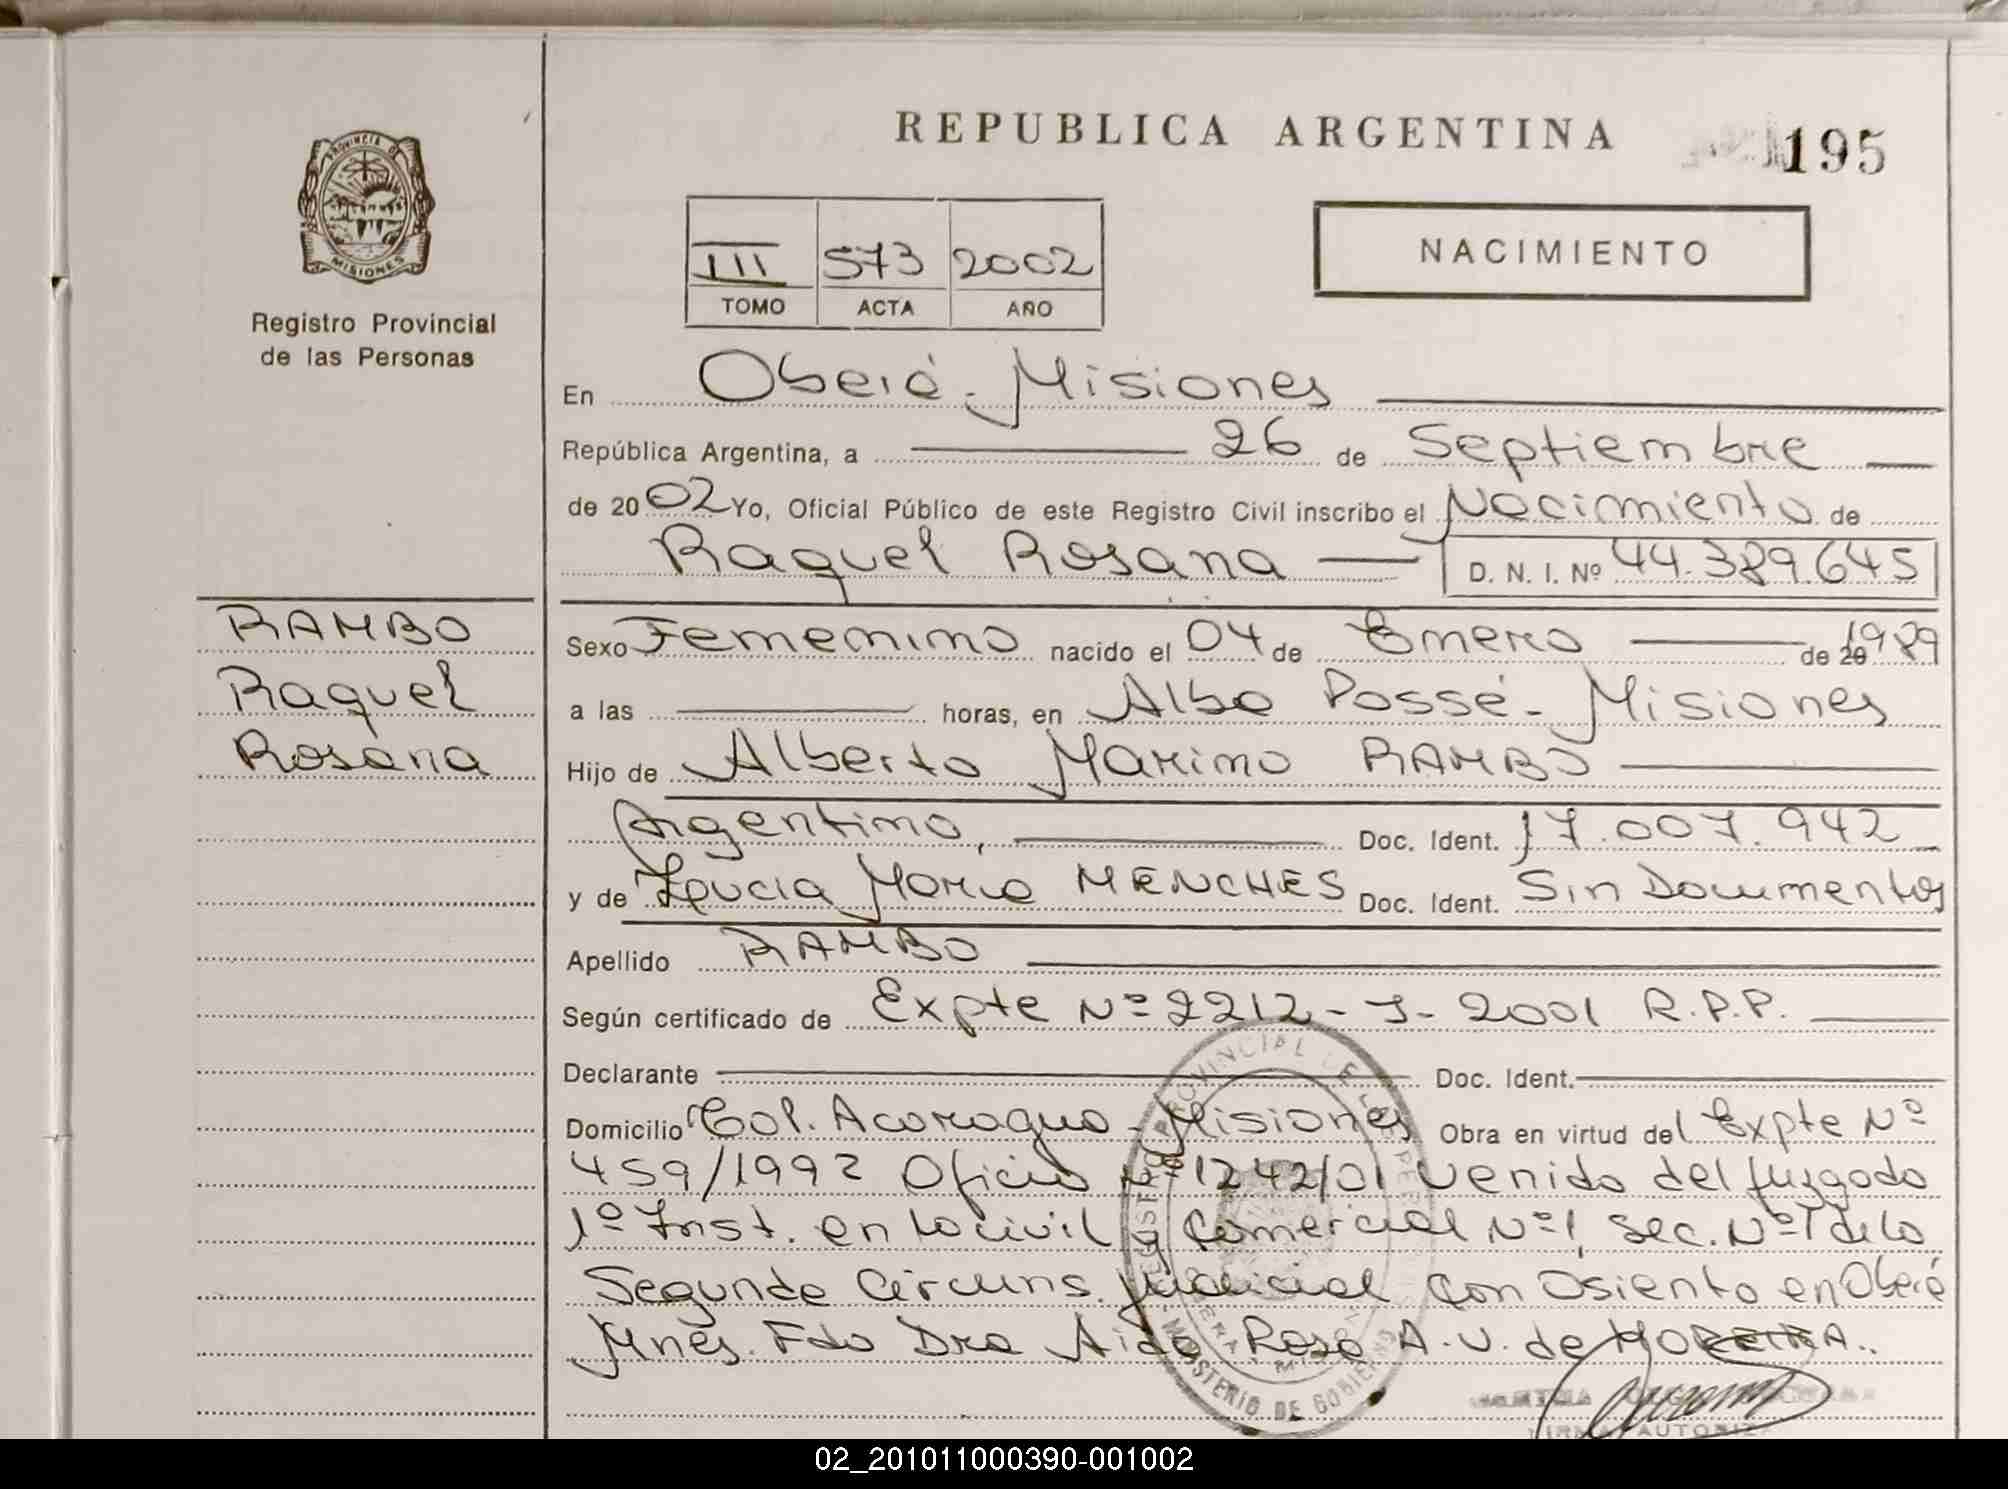 REPUBLICA ARGENTINA
195
PROVINCIA DE
MISIONES
Registro Provincial
de las Personas
III 573 2002
TOMO ACTA AÑO
NACIMIENTO
En Oberá - Misiones
República Argentina, a 26 de Septiembre
de 2002 Yo, Oficial Público de este Registro Civil inscribo el Nacimiento de
Raquel Rosana D. N. I. Nº 44.389.645
RAMBO
Raquel
Rosana
Sexo Femenino nacido el 04 de Enero de 20 1989
a las horas, en Alba Possé - Misiones
Hijo de Alberto Maximo RAMBO
Argentino, Doc. Ident. 17.007.942
y de Lucia Maria MENCHES Doc. Ident. Sin Documentos
Apellido RAMBO
Según certificado de Expte Nº 2212 - J - 2001 R.P.P.
Declarante Doc. Ident.
Domicilio Col. Acaragua - Misiones Obra en virtud del Expte Nº
459/1992 Oficio Nº 1242/01 venido del Juzgado
1º Inst. en lo civil y Comercial Nº 1, Sec. Nº 1 de la
Segunda Circuns. Judicial con Asiento en Oberá
Mnes. Fdo Dra Aida Rosa A. V. de MOREIRA..
MINISTERIO DE GOBIERNO
02_201011000390-001002